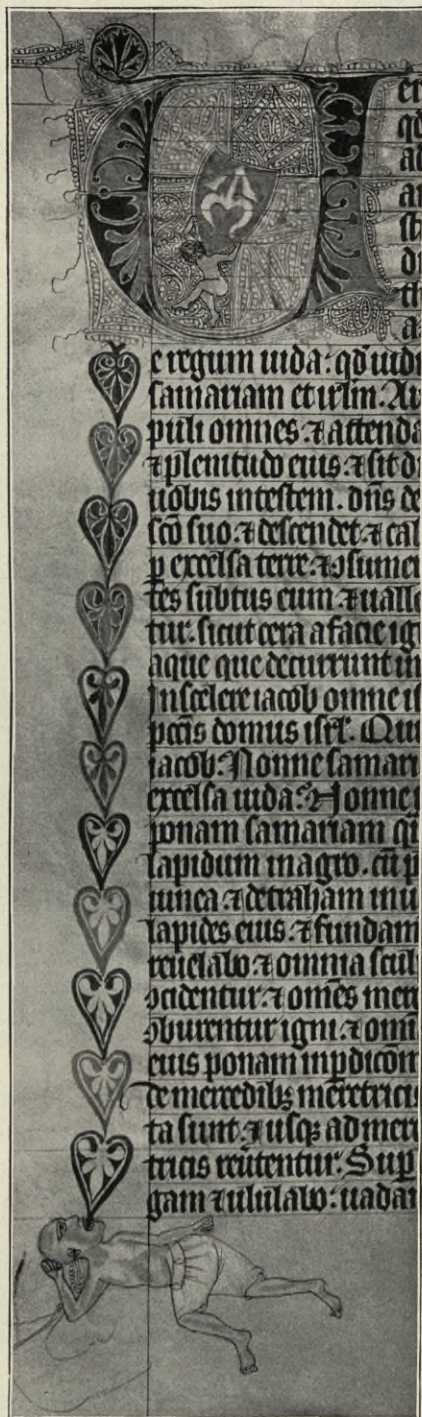 U
er
qd
ad
ar
di
th
a
e regum iuda: qd uidi
samariam et irlm. Au
puli omnes: ⁊ attenda
⁊ plenitudo eius: ⁊ sit d
uobis in testem. dns de
sco suo: ⁊ descendet: ⁊ cal
p excelsa terre. ⁊ ꝯsumen
tes subtus eum: ⁊ ualle
tur. sicut cera a facie ig
aque que decurrunt in
In scelere iacob omne is
pctis domus isrl. Qui
iacob: Nonne samari
excelsa iuda: Nonne i
ponam samariam qi
lapidum in agro. cu p
uinea: ⁊ detraham in u
lapides eius: ⁊ fundam
reuelabo: ⁊ omnia scul
ꝯcidentur: ⁊ omes merc
ꝯburentur igni: ⁊ omi
eius ponam in pdicom
de mercedibꝫ meretricis
ta sunt: ⁊ usqꝫ ad mer
tricis reutentur. Sup
gam ⁊ ululabo: uadā